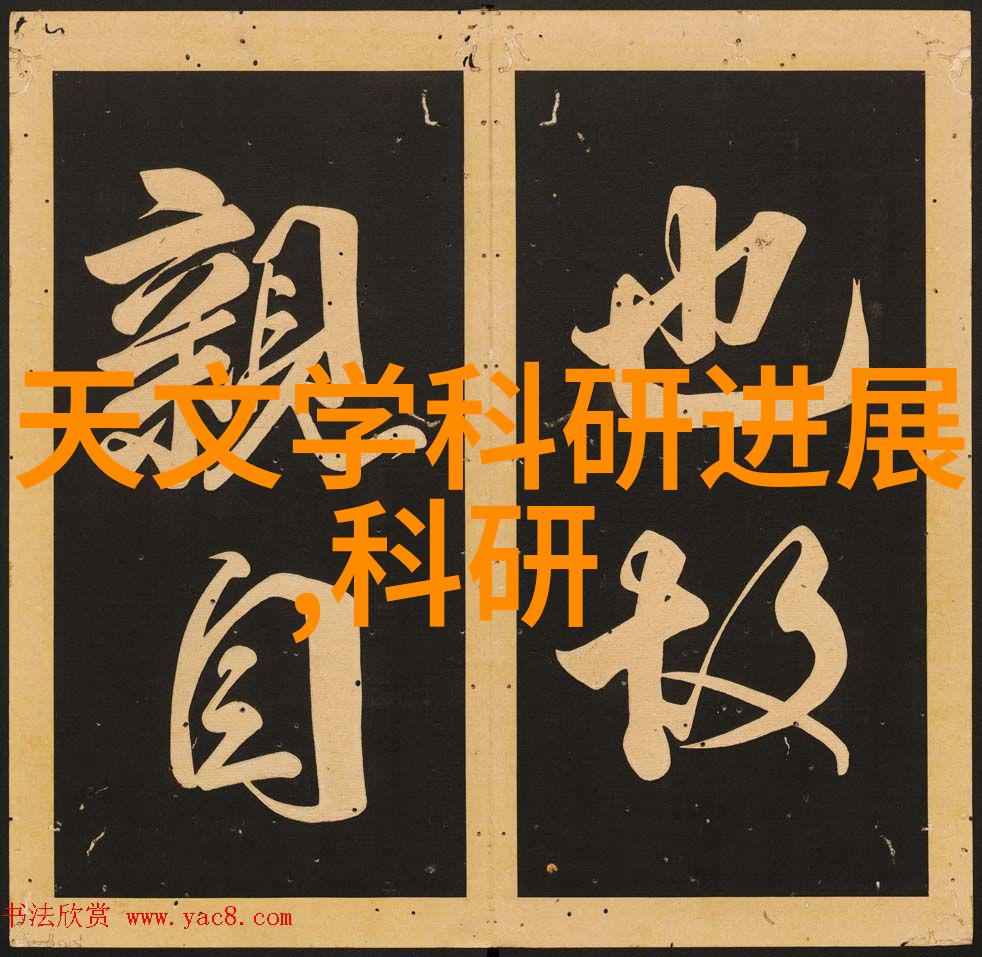 也故
親自
天文学科研进展
,科研
书法欣赏 www.yac8.com